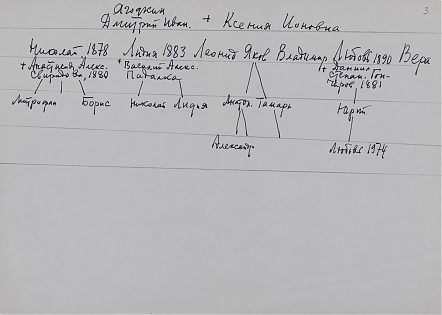 3
Дмитрий Иван. + Ксения Ионовна
Николай 1878 Лидия 1883 Леонид Яков Владимир Любовь 1890 Вера
+ Алекс. + Василий Алекс. + Даниил
1880 Степан. Гон-
чаров 1881
Митрофан Борис Николай Лидия Антон. Тамара Юрий
Александр Любовь 1974